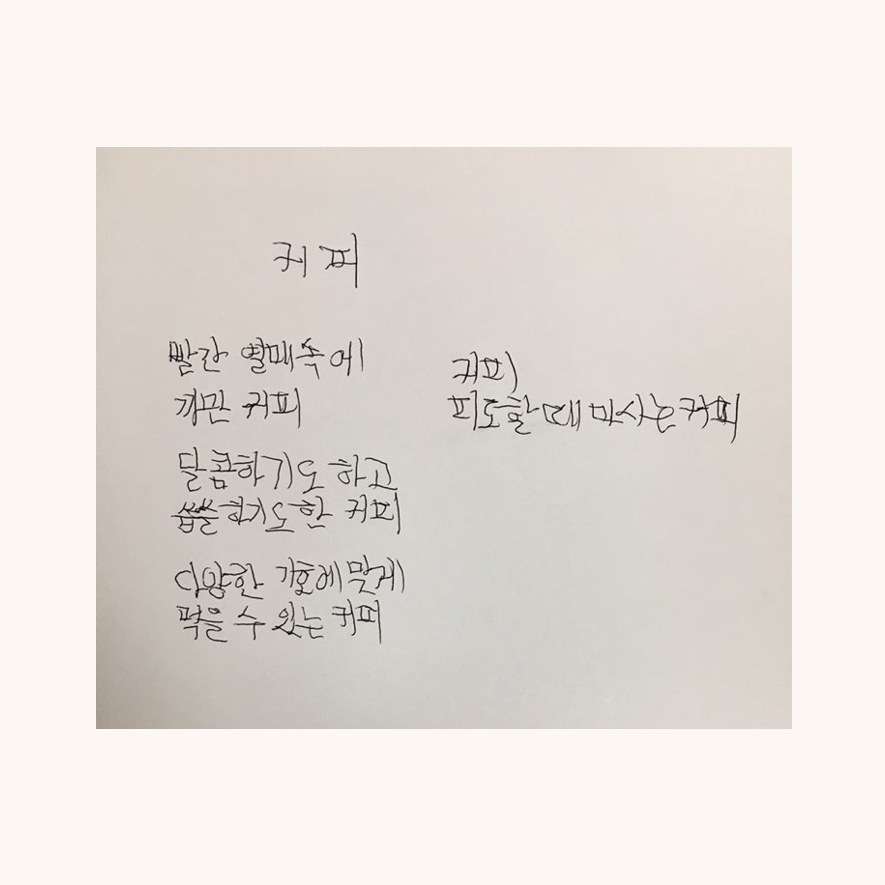 커피
빨간 열매속에
까만 커피
달콤하기도 하고
씁쓸하기도한 커피
다양한 기호에 맞게
먹을 수 있는 커피
커피
피로할때 마시는커피